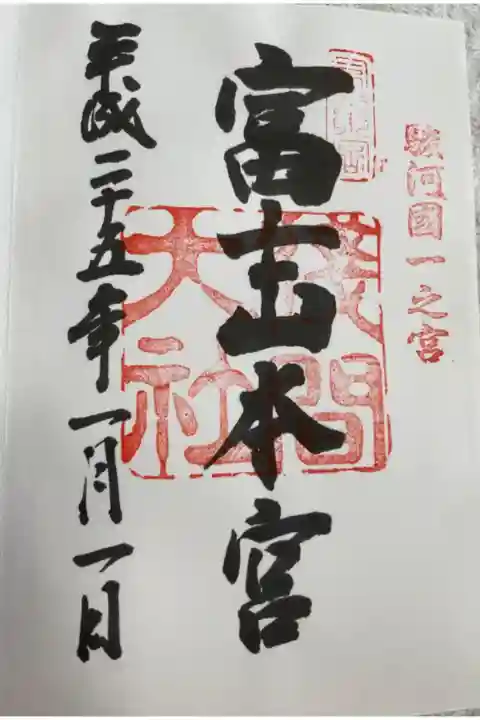 駿河國一之宮
富士山本宮
淺間
大社
平成二十五年一月一日